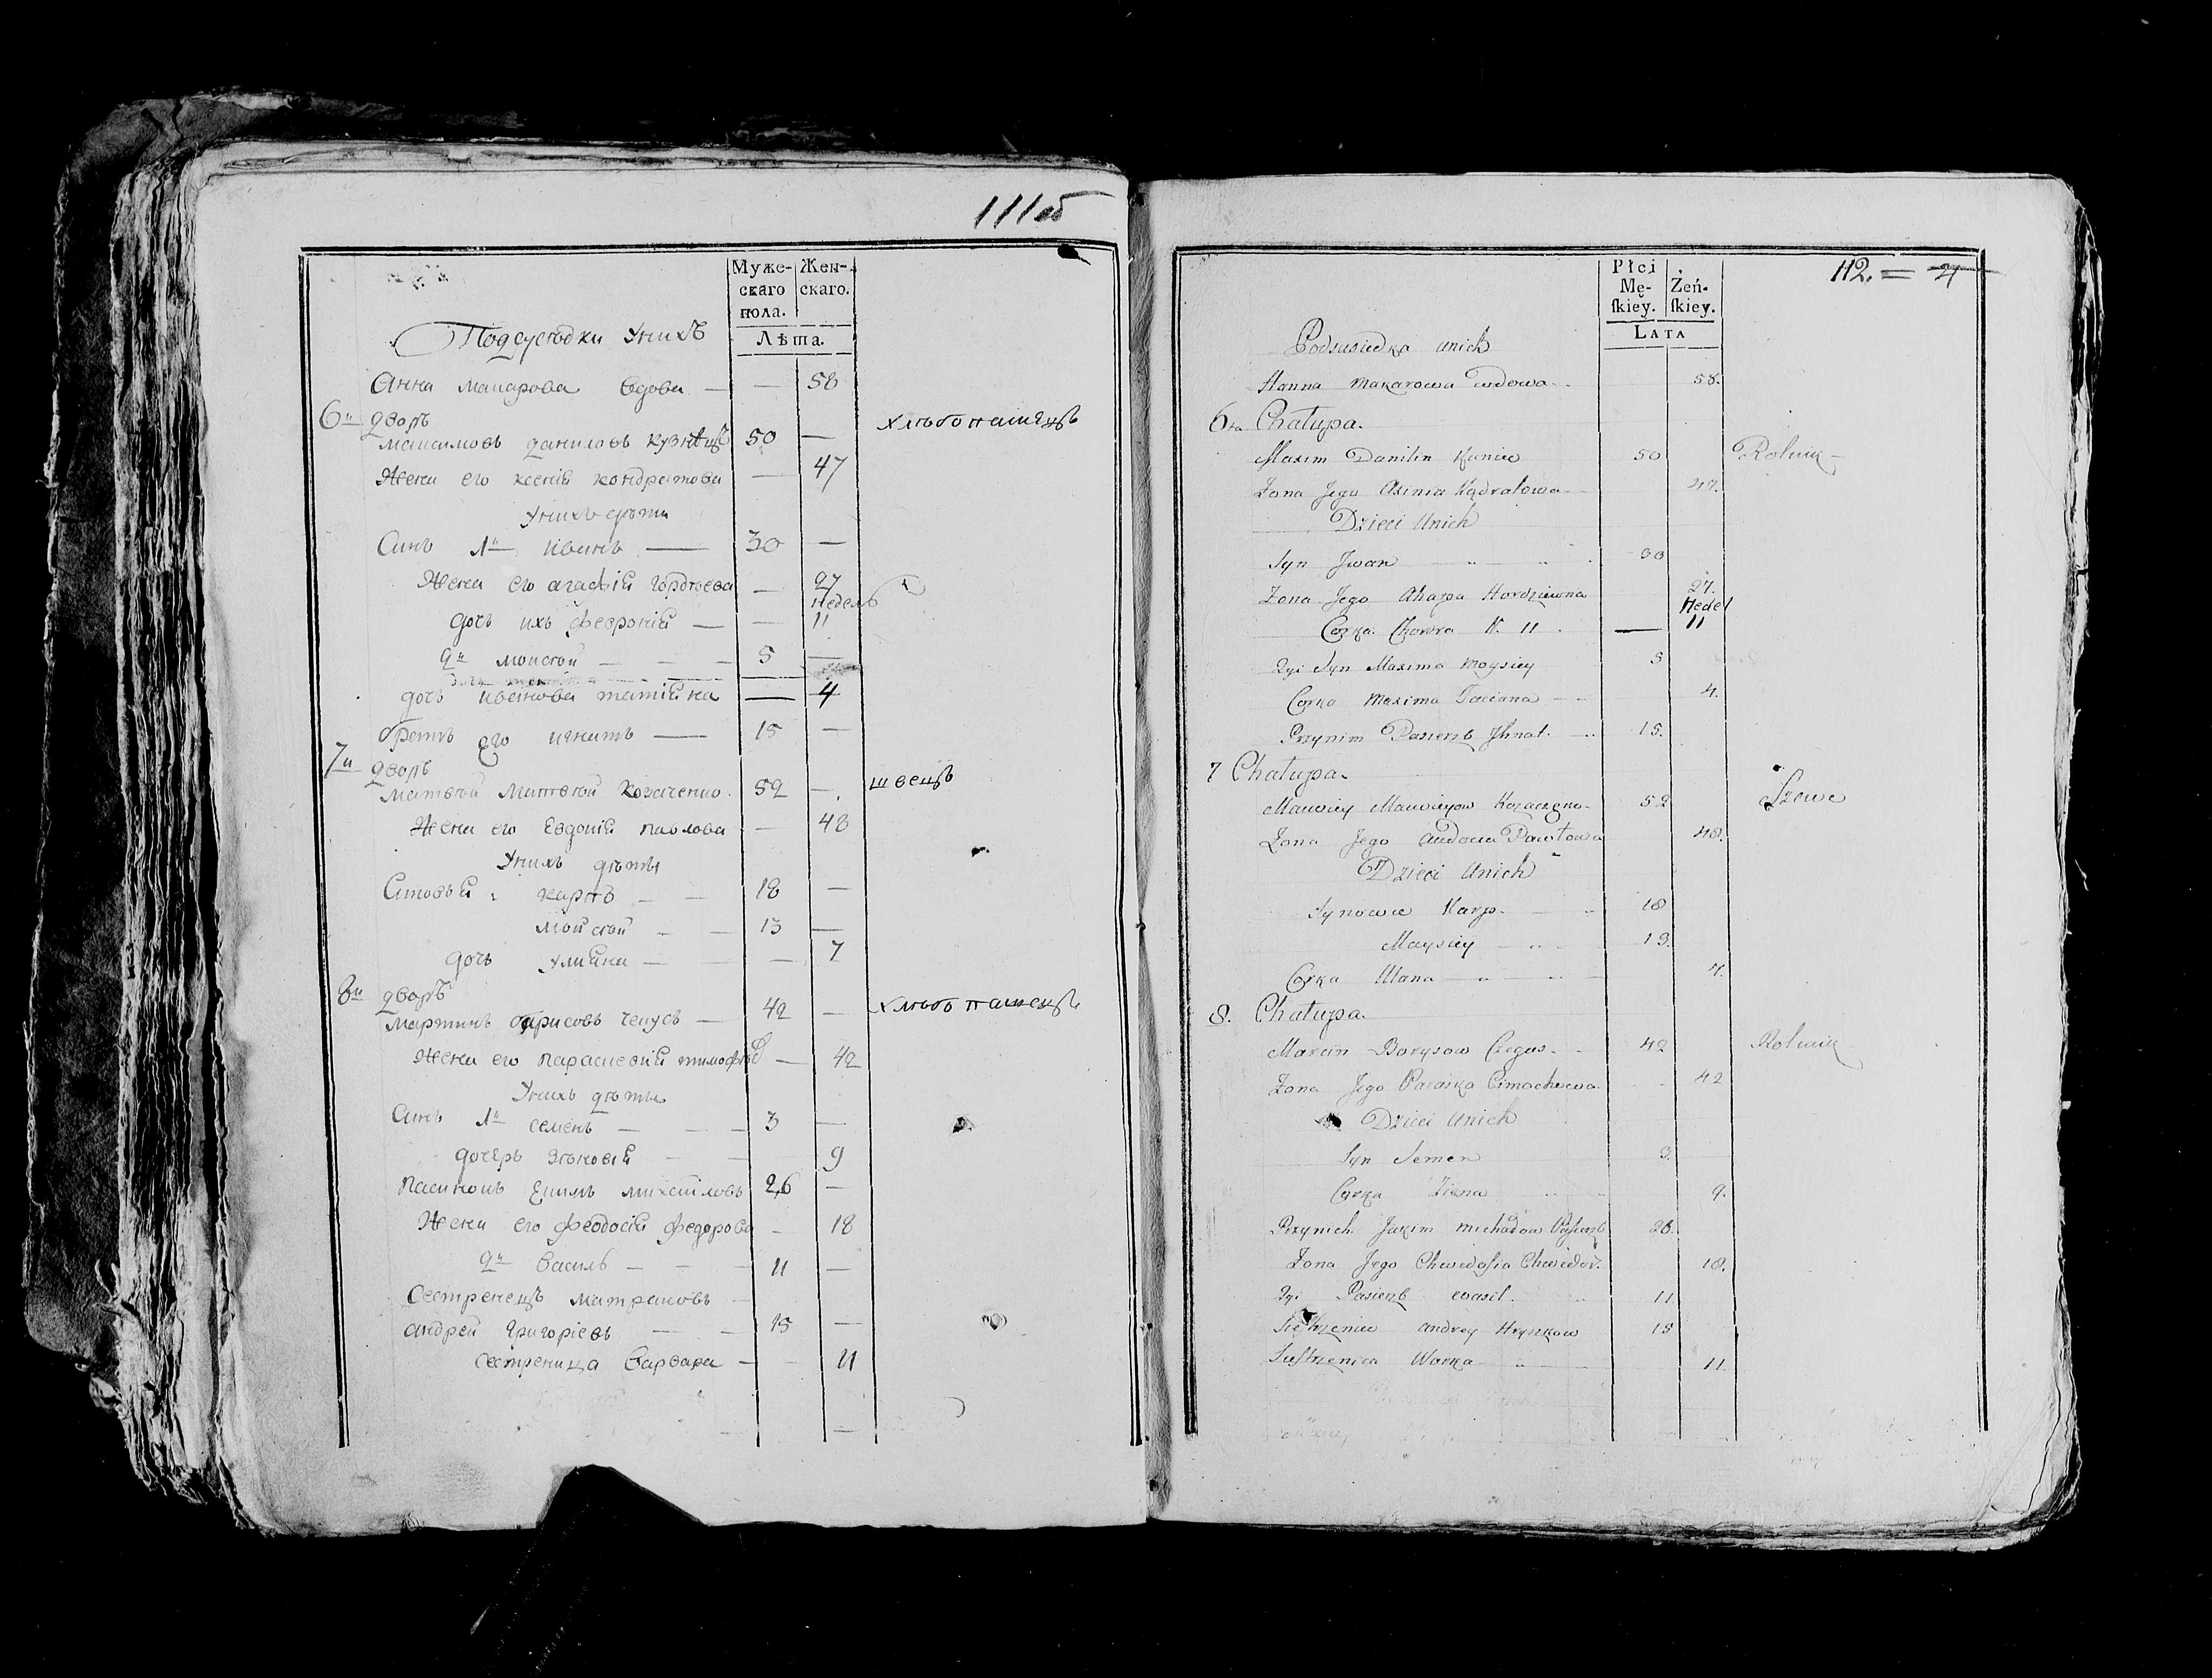 111об
Муже- Жен-
скаго скаго.
пола.
Лѣта.
Подсусѣдки Унихъ
Анна макарова вдова — — 58
6й дворъ хлѣбопашецъ
максимовъ даниловъ кузнѣцъ 50 —
Жена его ксенiя кондратова — 47
Унихъ дѣти
Синъ 1й иванъ — 30 —
Жена его агафiя гордѣева — 27
недель
дочъ ихъ феврония — — 11
2й мойсей — — — 5 —
дочъ иванова татiяна — 4
братъ его игнатъ — 15 —
7й дворъ швецъ
матвей матвей козаченко. 52 —
Жена его Евдокiя павлова — 48
Унихъ дѣти
Синовья: карпъ — — 18 —
мойсей — — 13 —
дочъ улияна — — — 7
8й дворъ хлѣбопашецъ
мартинъ борисовъ чепусъ — 42 —
Жена его параскевiя тимофѣе — 42
Унихъ дѣти
Синъ 1й семенъ — — — 3 —
дочеръ зѣновiя — — 9
пасинокъ Екимъ михайловъ 26 —
Жена его феодосiя федорова — 18
2й василь — — — 11 —
Сестренецъ матрановъ —
андрей григорiевъ — — 15 —
сестреница варвара — — 11
112. = 4
Płci
Mę- Żeń-
ſkiey. ſkiey.
LATA
Podsusiedka unich
Hanna Makarowa wdowa 58.
6ta Chałupa.
Maxim Danilin Kuniec 50 Rolnik
Zona Jego Axinia Kądratowa 47.
Dzieci Unich
Syn Jwan 30
Zona Jego Ahapa Hordziewna 27.
Nedel
Corka Chowra N. 11. — 11
2gi Syn Maxima Moysiey 5
Corka Maxima Taciana 4.
Przynim Pasierzb Jhnat 15.
7 Chałupa.
Mauwiey Mauwieyow Kozaczęko 52 Szewc
Zona Jego Audocia Pawłowa 48.
Dzieci Unich
Synowie Karp. 18
Maysiey 13.
Corka Ulana 7.
8. Chałupa.
Marcin Borysow Czegus 42 Rolnik
Zona Jego Paraska Cimochwowa 42
Dzieci Unich
Syn Semen 3.
Corka Ziena 9.
Przynich Jakim Michałow Paſierzb 26.
Zona Jego Chwedoſia Chwidor. 18.
2gi Pasierzb wasil. 11
Sieſtrzeniec Andrey Hryszkow 15
Sieſtrzenica Warka 11.